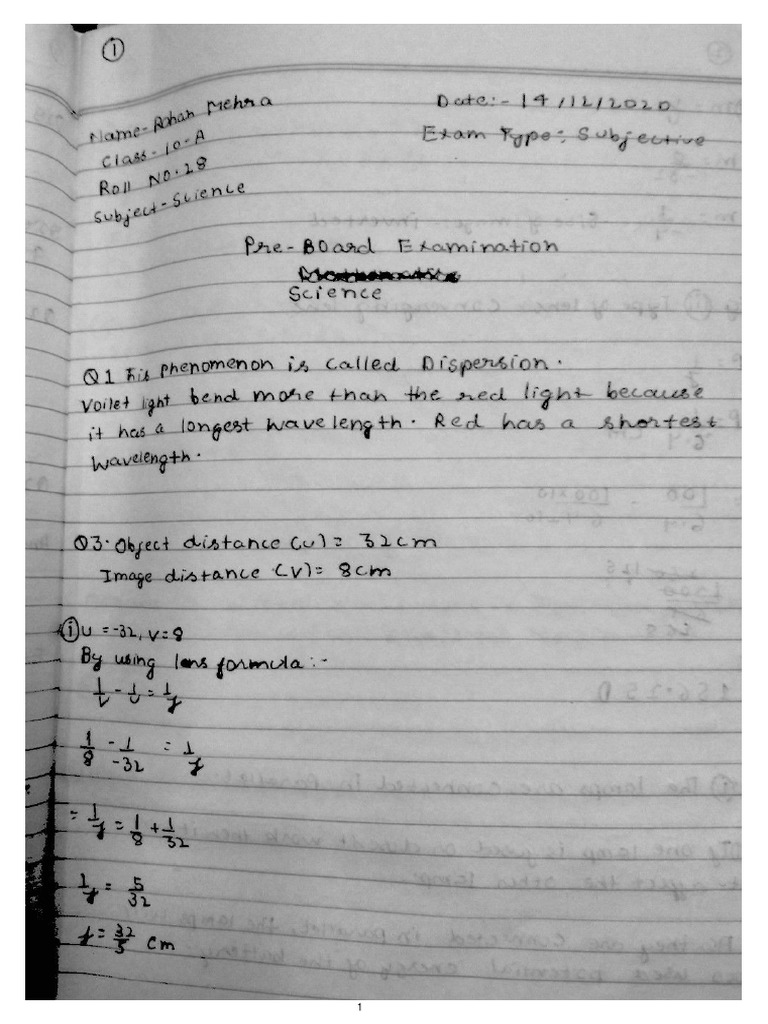 1
Name-Rohan Mehra
Date:- 14/12/2020
Class-10-A
Exam Type:- Subjective
Roll No.28
Subject-Science
Pre-Board Examination
Science
Q1 This phenomenon is called Dispersion.
Voilet light bend more than the red light because
it has a longest wavelength. Red has a shortest
wavelength.
Q3. Object distance (u) = 32cm
Image distance (v) = 8cm
(i) u = -32, v = 8
By using lens formula:-
1/v - 1/u = 1/f
1/8 - 1/-32 = 1/f
= 1/f = 1/8 + 1/32
1/f = 5/32
f = 32/5 cm
1